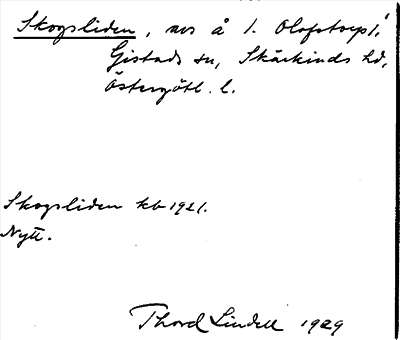 Skogsliden, avs å 1. Olofstorp i
Gistads sn, Skärkinds hd,
Östergötl. l.
Skogsliden kb 1921.
Nytt.
Thord Lindell 1929